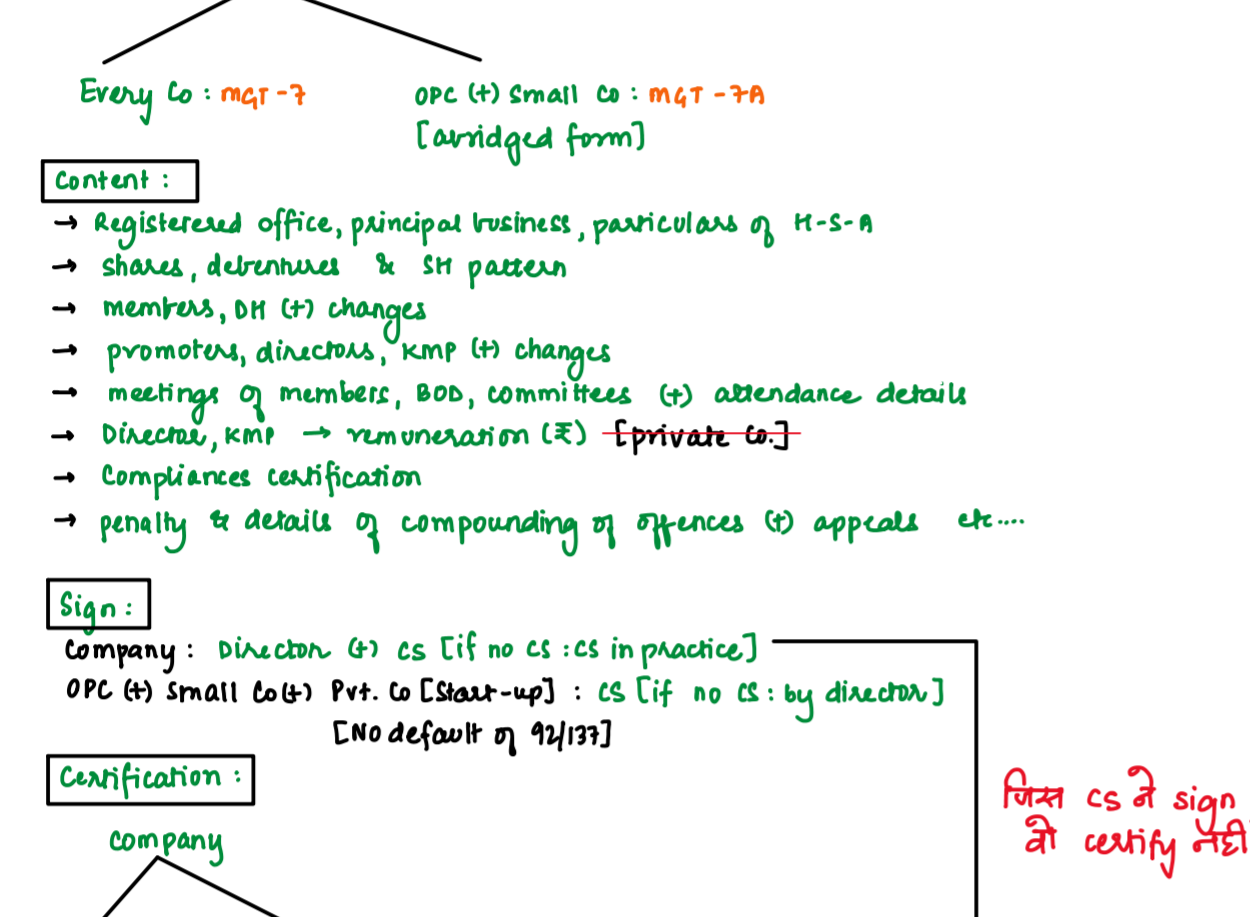 Every Co : MGT-7
OPC (+) Small Co : MGT-7A
[abridged form]
Content :
→ Registerered office, principal business, particulars of H-S-A
→ shares, debentures & SH pattern
→ members, DH (+) changes
→ promoters, directors, KMP (+) changes
→ meetings of members, BOD, committees (+) attendance details
→ Director, KMP → remuneration (₹) [private co.]
→ Compliances certification
→ penalty & details of compounding of offences (+) appeals etc....
Sign :
Company : Director (+) CS [if no CS : CS in practice]
OPC (+) Small Co (+) Pvt. Co [Start-up] : CS [if no CS : by director]
[No default of 92/137]
Certification :
जिस CS ने sign
वो certify नहीं
Company